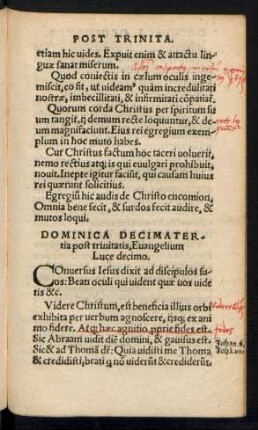 POST TRINITA.
etiam hic vides. Expuit enim & attactu lin-
guæ sanat miserum.
Quod coniectis in cælum oculis inge-
miscit, eo fit, ut uideamꝰ quàm incredulitati
nostræ, imbecillitati, & infirmitati cōpatiať.
Quorum corda Christus per spiritum su
um tangit, ij demum recte loquuntur, & de-
um magnifaciunt. Eius rei egregium exem-
plum in hoc muto habes.
Cur Christus factum hoc taceri uoluerit,
nemo rectius atq; is qui euulgari prohibuit,
nouit. Inepte igitur faciūt, qui causam huius
rei quærunt solicitius.
Egregiū hic audis de Christo encomion,
Omnia bene fecit, & surdos fecit audire, &
mutos loqui.
DOMINICA DECIMATER-
tia post trinitatis, Euangelium
Luce decimo.
COnuersus Iesus dixit ad discipulos su-
os: Beati oculi qui uident quæ uos uide
tis &c.
Videre Christum, est beneficia illius orbi
exhibita per uerbum agnoscere, ijsq; ex ani
mo fidere. Atq; hæc agnitio, pprie fides est.
fides
Sic Abraam uidit diē domini, & gauisus est.
Johan. 8.
Sic & ad Thomā dr̄: Quia uidisti me Thoma
& credidisti, beati q nō uiderūt & crediderūt.